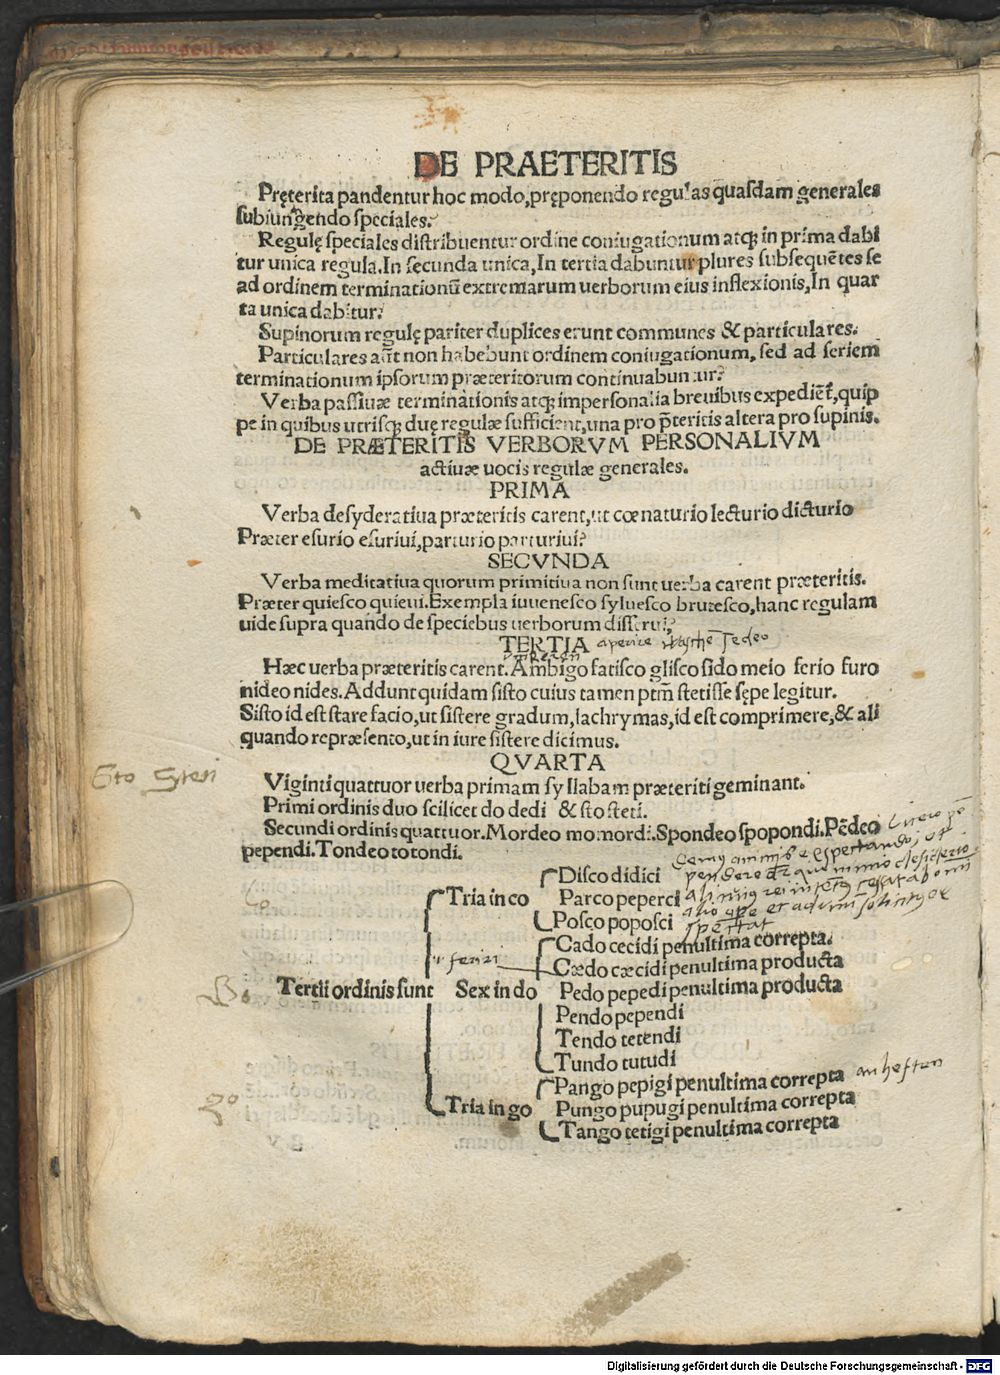 DE PRAETERITIS
Pręterita pandentur hoc modo, pręponendo regulas quasdam generales
subiungendo speciales.
Regulę speciales distribuentur ordine coniugationum atq; in prima dabi
tur unica regula. In secunda unica, In tertia dabuntur plures subsequētes se
ad ordinem terminationū extremarum uerborum eius inflexionis, In quar
ta unica dabitur.
Supinorum regulę pariter duplices erunt communes & particulares.
Particulares aūt non habebunt ordinem coniugationum, sed ad seriem
terminationum ipsorum præteritorum continuabuntur.
Verba passiuæ terminationis atq; impersonalia breuibus expediēt, quip
pe in quibus utrisq; duę regulæ sufficient, una pro p̄teritis altera pro supinis.
DE PRÆTERITIS VERBORVM PERSONALIVM
actiuæ uocis regulæ generales.
PRIMA
Verba desyderatiua præteritis carent, ut cœnaturio lecturio dicturio
Præter esurio esuriui, parturio parturiui.
SECVNDA
Verba meditatiua quorum primitiua non sunt uerba carent præteritis.
Præter quiesco quieui. Exempla iuuenesco syluesco brutesco, hanc regulam
uide supra quando de speciebus uerborum disserui.
TERTIA aperire
Hæc uerba præteritis carent. Ambigo fatisco glisco sido meio ferio furo
nideo nides. Addunt quidam sisto cuius tamen ptm̄ stetisse sępe legitur.
Sisto id est stare facio, ut sistere gradum, lachrymas, id est comprimere, & ali
quando repræsento, ut in iure sistere dicimus.
QVARTA
Sto Steti
Viginti quattuor uerba primam syllabam præteriti geminant.
Primi ordinis duo scilicet do dedi & sto steti.
Secundi ordinis quattuor. Mordeo momordi. Spondeo spopondi. Pēdeo
pependi. Tondeo totondi.
Tertii ordinis sunt
Co
Tria in co
Disco didici
Parco peperci
Posco poposci
Do
Sex in do
Cado cecidi penultima correpta.
feriri
Cædo cæcidi penultima producta
Pedo pepedi penultima producta
Pendo pependi
Tendo tetendi
Tundo tutudi
go
Tria in go
Pango pepigi penultima correpta anheften
Pungo pupugi penultima correpta
Tango tetigi penultima correpta
Digitalisierung gefördert durch die Deutsche Forschungsgemeinschaft - DFG